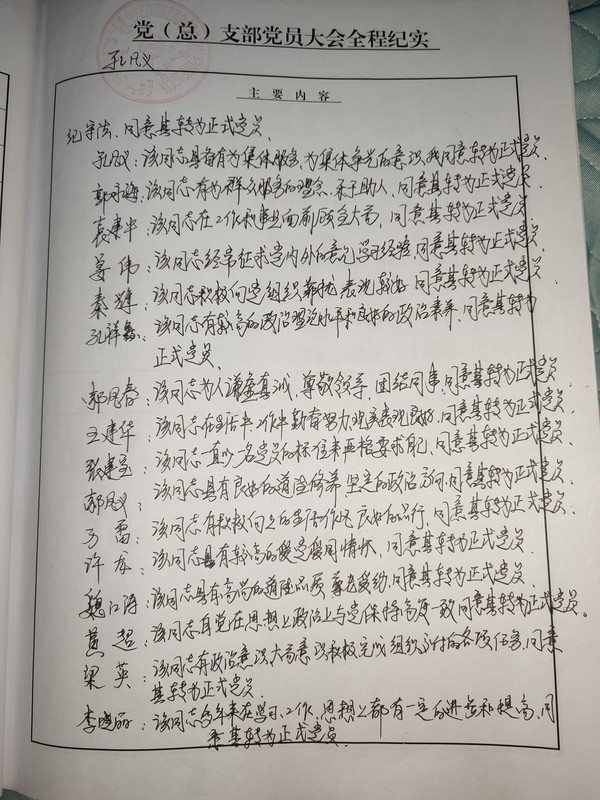 党（总）支部党员大会全程纪实
孔凡义
主要内容
纪宗浩，同意其转为正式党员。
孔凡义：该同志具备有为集体服务、为集体争光的意识，我同意其转为正式党员。
郭：该同志有为群众服务的理念，乐于助人，同意其转为正式党员。
袁：该同志在工作和事业面前顾全大局，同意其转为正式党员。
姜伟：该同志经常征求党内外的意见学习经验，同意其转为正式党员。
秦：该同志积极向党组织靠拢，表现较好，同意其转为正式党员。
孔祥：该同志有较高的政治理论水平和良好的政治素养，同意其转为
正式党员。
郭凤春：该同志为人谦虚真诚，尊敬领导，团结同事，同意其转为正式党员。
王建华：该同志在生活中工作中勤奋努力，现实表现良好，同意其转为正式党员。
张：该同志一直以一名党员的标准来严格要求自己，同意其转为正式党员。
郭凡义：该同志具有良好的道德修养，坚定的政治方向，同意其转为正式党员。
于雷：该同志有积极向上的生活作风，良好的品行，同意其转为正式党员。
许龙：该同志具有较高的爱党爱国情怀，同意其转为正式党员。
魏江涛：该同志具有高尚的道德品质，遵纪守法，同意其转为正式党员。
黄超：该同志自觉在思想上政治上与党保持高度一致，同意其转为正式党员。
梁英：该同志有政治意识，大局意识，积极完成组织交付的各项任务，同意
其转为正式党员。
李晓丽：该同志今年来在学习、工作、思想上都有一定的进步和提高，同
意其转为正式党员。